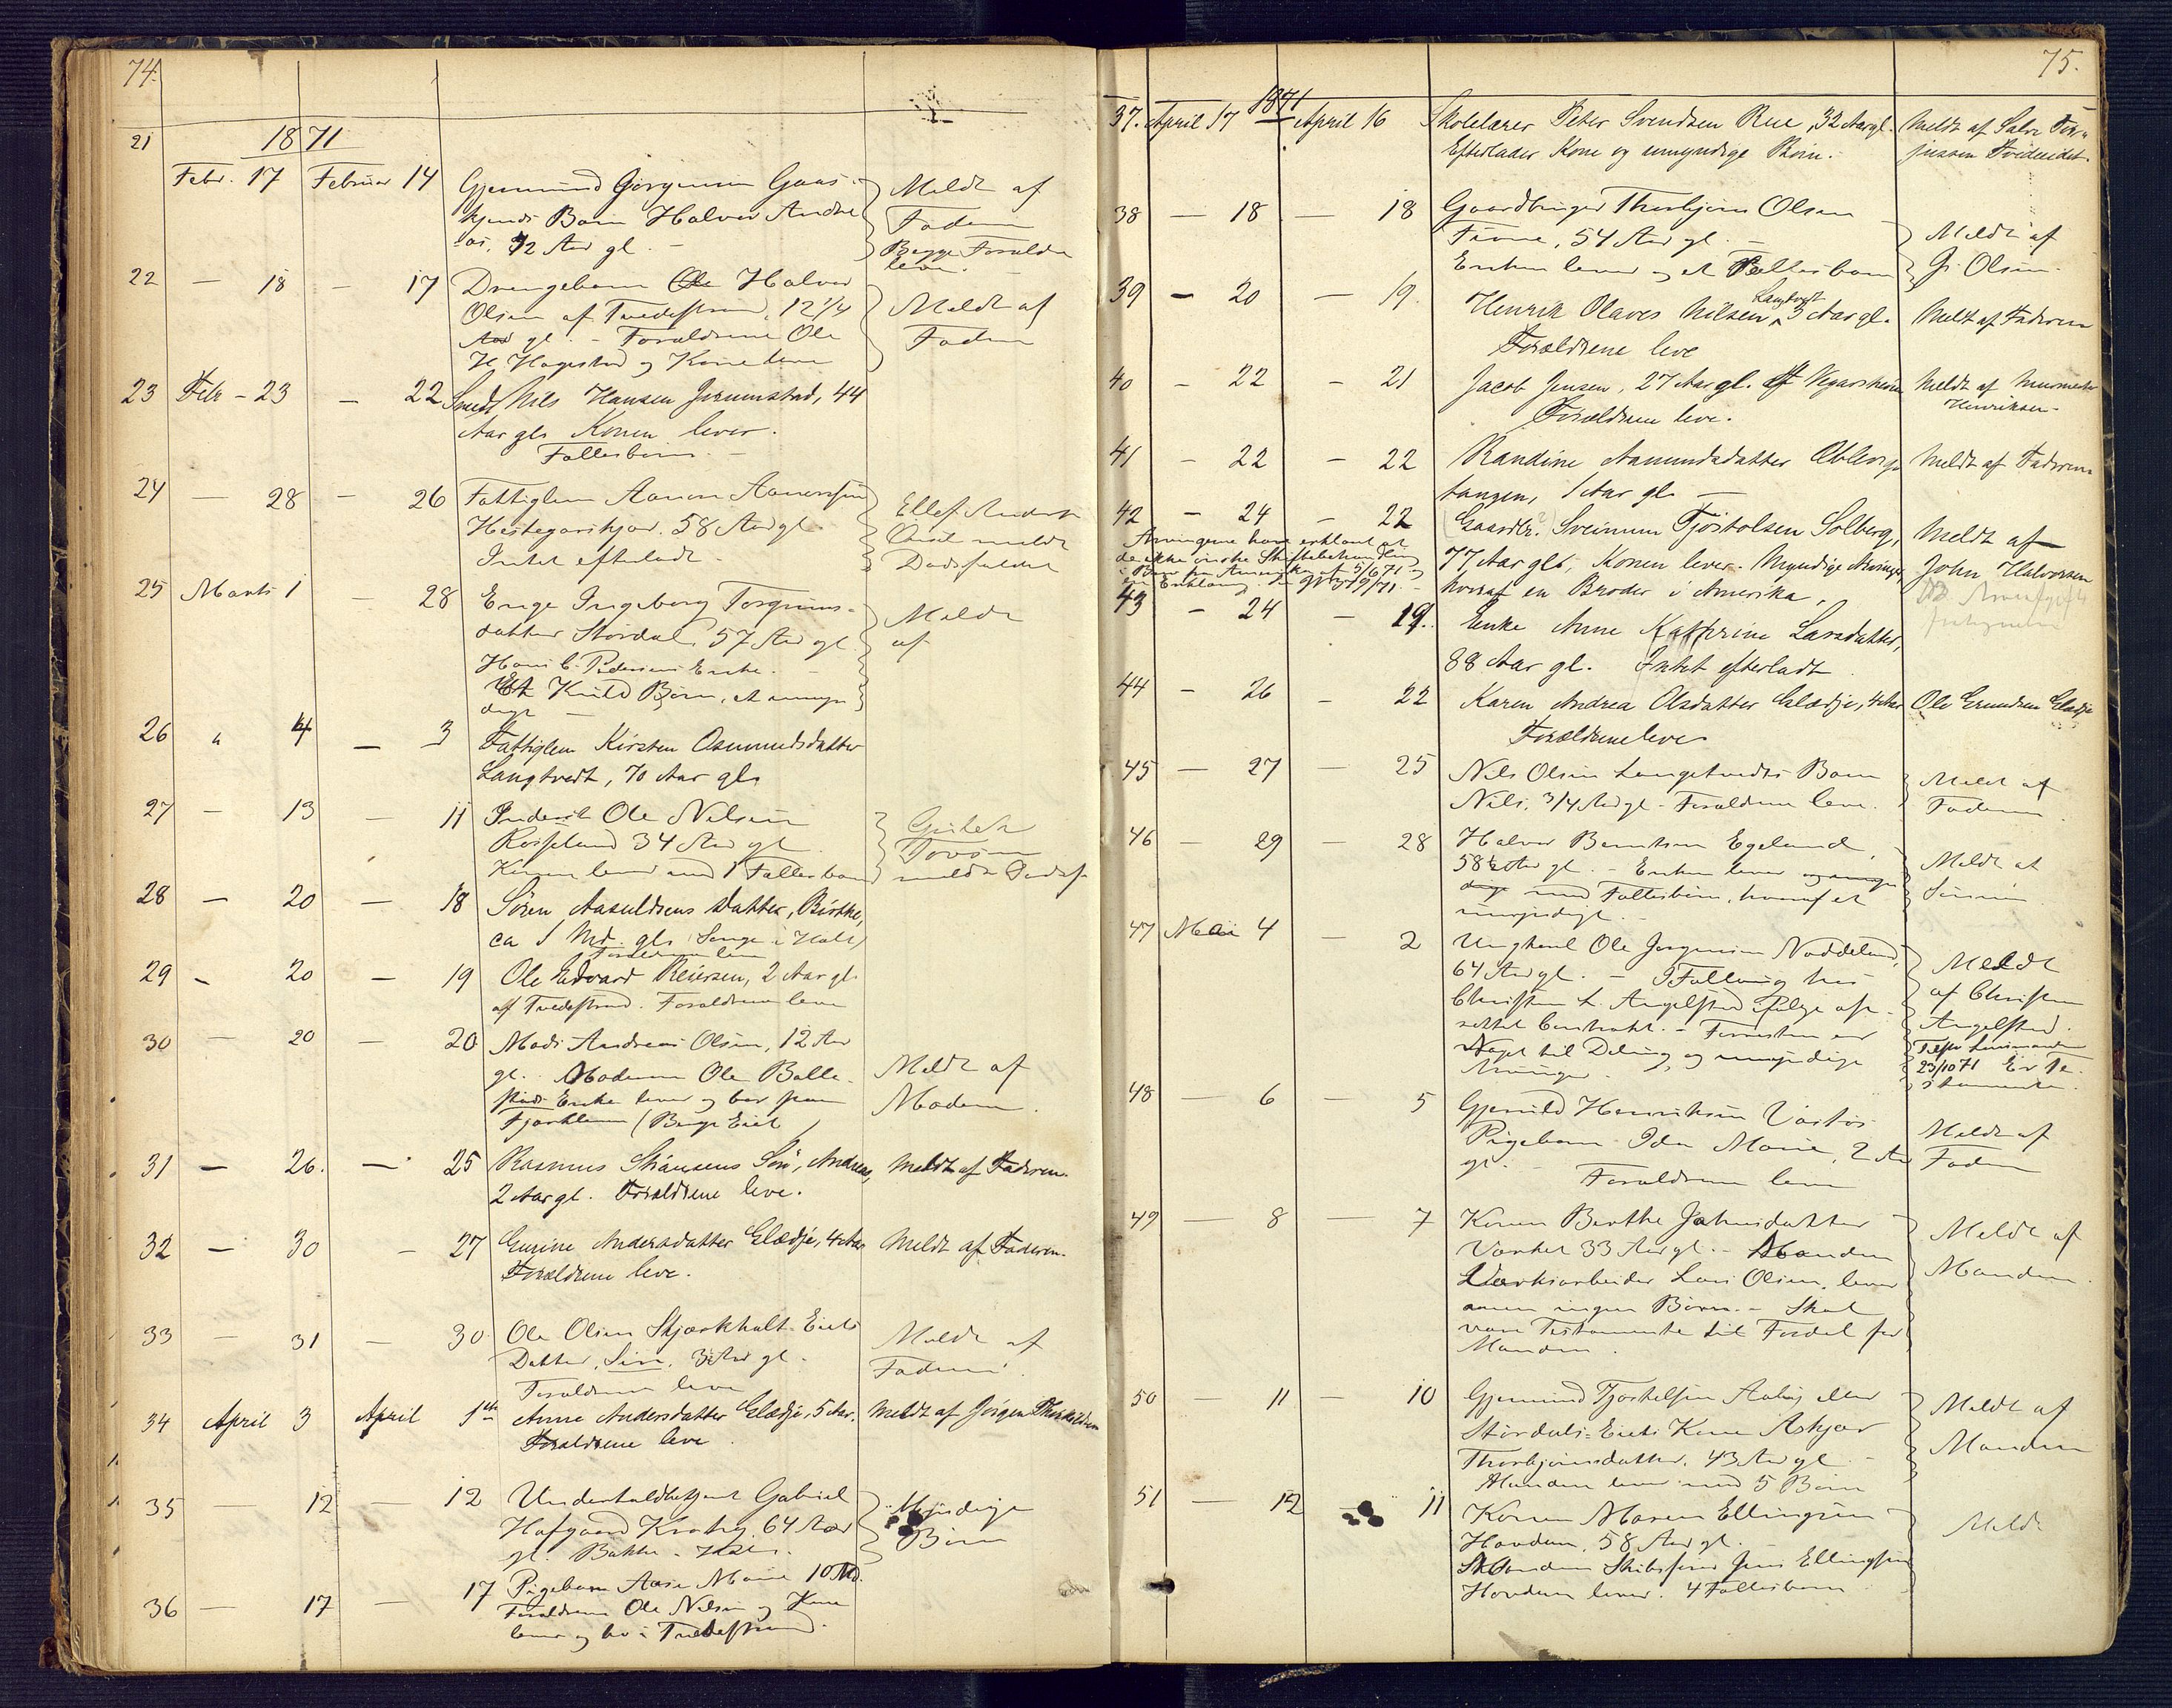 74.
21
1871
Febr. 17 Februar 14 Gjermund Jørgensen Gaas- Meldt af
kjends Barn Halvor Andre Faderen
as, 1/2 Aar gl. - Begge Forældre
leve.
22 - 18 - 17 Drengebarn Ole Halvor
Olsen af Tvedestrand, 12 1/4 Meldt af
Aar gl. - Forældrene Ole Faderen
H. Hagestad og Kone leve
23 Febr - 23 - 22 Smed Nils Hansen Jorunnstad, 44
Aar gl. Konen lever.
Fællesbørn. -
24 - 28 - 26 Fattiglem Aanon Aanonsen Ellef Anders
Hestegarskjær. 58 Aar gl. meldt
Intet efterladt - Dødsfaldet
25 Marts 1 - 28 Enge Ingeborg Torgrims- Meldt
datter Størdal, 57 Aar gl. af
Hans C. Pedersens Enke. -
Et Kuld Børn, et umyn
digt -
26 " 4 - 3 Fattiglem Kirsten Osmundsdatter
Langtvedt, 70 Aar gl.
27 - 13 - 11 Inderst Ole Nilsen
Roiseland 34 Aar gl.
Konen lever med 1 Fællesbarn meldt Dødsf.
28 - 20 - 18 Søren Aasuldsens Datter, Birthe,
ca 1 Md. gl. (Songe i Holt)
Forældrene leve
29 - 20 - 19 Ole Edvard Reiersen, 2 Aar gl.
af Tvedestrand. Forældrene leve
30 - 20 - 20 Mads Andreas Olsen, 12 Aar
gl. Moderen Ole Balle- Meldt af
stads Enke lever og bor paa Moderen.
Fjærklemen (Berge Eiet)
31 - 26. - 25 Rasmus Stiansens Søn, Andreas, Meldt af Faderen.
2 Aar gl. Forældrene leve.
32 - 30 - 27 Gurine Andersdatter Glædje, 4 Aar Meldt af Faderen.
Forældrene leve.
33 - 31 - 30 Ole Olsen Skjærkholt-Eiets Meldt af
Datter, Sine, 3 Aar gl. Faderen.
Forældrene leve
34 April 3 April 1ste Anne Andersdatter Glædje, 5 Aar. Meldt af Jørgen Thorkildsen
Forældrene leve.
35 - 12 - 12 Underholdbetjent Gabriel Myndige
Hofgaard Krohg, 64 Aar Børn
gl. Bakke - Holt.
36 - 17 - 17 Pigebarn Aase Marie 10 Md.
Forældrene Ole Nilsen og Kone
lever og bo i Tvedestrand.
75.
1871
37. April 17 - April 16 Skolelærer Peter Svendsen Rue, 32 Aar gl. Meldt af Salve Ter-
Efterlader Kone og umyndige Børn. jussen Tvedeeidet.
38 - 18 - 18 Gaardbruger Thorbjørn Olsen
Fiane, 54 Aar gl. - Meldt af
Enken lever og et Fællesbarn G. Olsen.
39 - 20 - 19. Henrik Olaves Nilsen, Langtvedt 3 Aar gl. Meldt af Faderen
Forældrene leve
40 - 22 - 21 Jacob Jensen, 27 Aar gl. af Vegarsheien Meldt af Murmester
Forældrene leve. Henriksen -
41 - 22 - 22 Randine Aanundsdatter Æblevigs Meldt af Faderen
tangen, 1 Aar gl. -
42 - 24 - 22 (Gaardbr.?) Sveinum Tjøstolsen Solberg, Meldt af
77 Aar gl., Konen lever. Myndige Arvinger, John Halvorsen
hvoraf en Broder i Amerika.
Arvingene have erklæret at
de ikke ønske Skiftebehandling
43 - 24 - 19. Enke Anne Kathrine Larsdatter,
88 Aar gl. Intet efterladt
44 - 26 - 22 Karen Andrea Olsdatter Glædje, 4 Aar Ole Greundsen Glædje
Forældrene leve
45 - 27 - 25 Nils Olsen Langetvedts Barn Meldt af
Nils, 3/4 Aar gl. - Forældrene leve. Faderen.
46 - 29 - 28 Halvor Berntsen Egeland, Meldt af
58 1/2 Aar gl. - Enken lever og umyn Sønnen
dige med Fællesbørn, hvoraf et
umyndigt. -
47 Mai 4 - 2 Ungkarl Ole Jørgensen Noddeland, Meldt
64 Aar gl. - I Føderaad hos af Christen
Christen L. Angelstad ifølge opr- Angelstad.
settet Contrakt. - Forresten er
Noget til Deling, og umyndige 23/10 71 Er Te-
Arvinger. stamente.
48 - 6 - 5 Gjeruld Henriksen Vastøs Meldt af
Pigebarn Ida Marie, 2 Aar Faderen
gl. - Forældrene leve
49 - 8 - 7 Konen Berthe Johnsdatter Meldt af
Værket 33 Aar gl. - Manden Manden.
Værksarbeider Lars Olsen, lever
men ingen Børn. - Skal
være Testamente til Fordel for
Manden.
50 - 11 - 10 Gjermund Tjøstelsen Aaby eller Meldt af
Størdals-Eiets Kone Askjær Manden
Thorbjørnsdatter. 43 Aar gl. -
Manden lever med 5 Børn
51 - 12 - 11 Konen Maren Ellingsen Meldt
Hovden, 58 Aar gl. -
Manden Skibsfører Jens Ellingsen
Hovden lever. 4 Fællesbørn